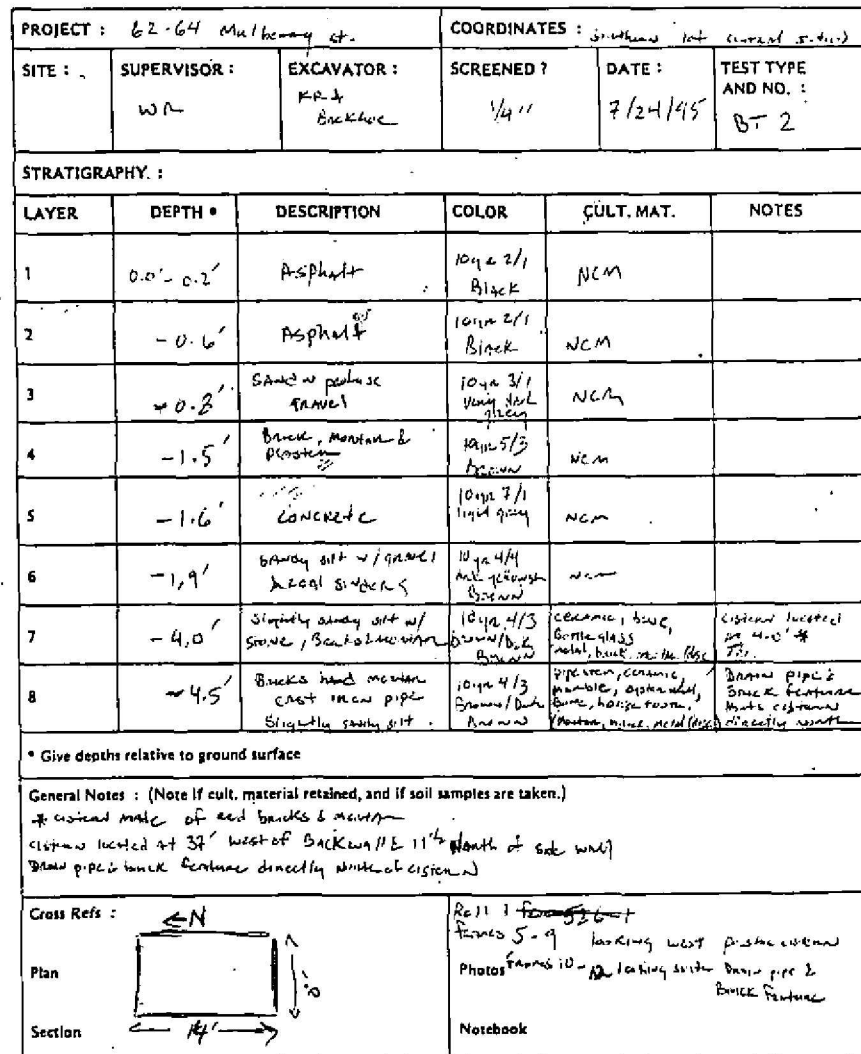 PROJECT : 62-64 Mulberry st. COORDINATES : southern lot
SITE : SUPERVISOR : EXCAVATOR : SCREENED ? DATE : TEST TYPE AND NO. :
WR KR & Backhoe 1/4" 7/24/95 BT 2
STRATIGRAPHY. :
LAYER DEPTH • DESCRIPTION COLOR CULT. MAT. NOTES
1 0.0'- 0.2' Asphalt 10yr 2/1 Black NCM
2 - 0.6' Asphalt 10yr 2/1 Black NCM
3 - 0.8' SAND w GRAVEL 10yr 3/1 Very dark grey NCM
4 -1.5' Brick, mortar & plaster 10yr 5/3 Brown NCM
5 -1.6' CONCRETE 10yr 7/1 light gray NCM
6 -1.9' SANDY silt w/ gravel & coal cinders 10yr 4/4 dark yellowish Brown NCM
7 - 4.0' Slightly sandy silt w/ stone, 10yr 4/3 Brown/Dark Brown ceramic, bone, Bottle glass metal, brick, cistern located 4.0' *
8 ~ 4.5' Bricks mortar cast iron pipe Slightly sandy silt 10yr 4/3 Brown/Dark Brown pipestem, ceramic, marble, oyster shell, Bone, tooth, Drain pipe & Brick feature cistern directly north
• Give depths relative to ground surface
General Notes : (Note if cult. material retained, and if soil samples are taken.)
* cistern made of red bricks & mortar
cistern located at 37' west of Back wall & 11' North of side wall
Drain pipe & brick feature directly north of cistern
Cross Refs : ←N
Roll 1
frames 5-9 looking west cistern
Plan
Photos frames 10-12 looking Drain pipe & Brick Feature
Section 14'
Notebook